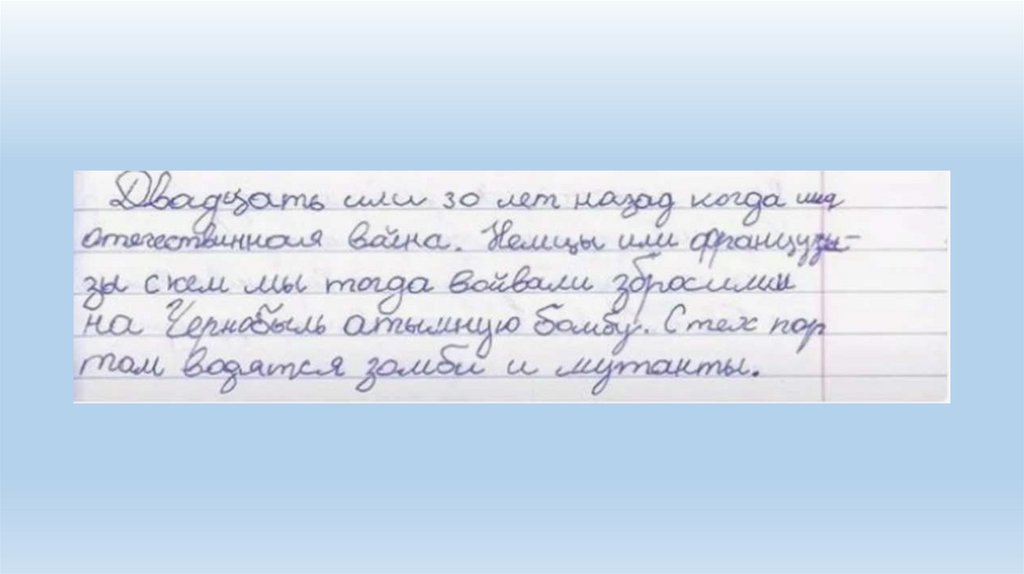 Двадцать или 30 лет назад когда шла
отечествинная вайна. Немцы или французы-
зы с кем мы тогда войвали збросили
на Чернобыль атымную бомбу. С тех пор
там водятся зомби и мутанты.